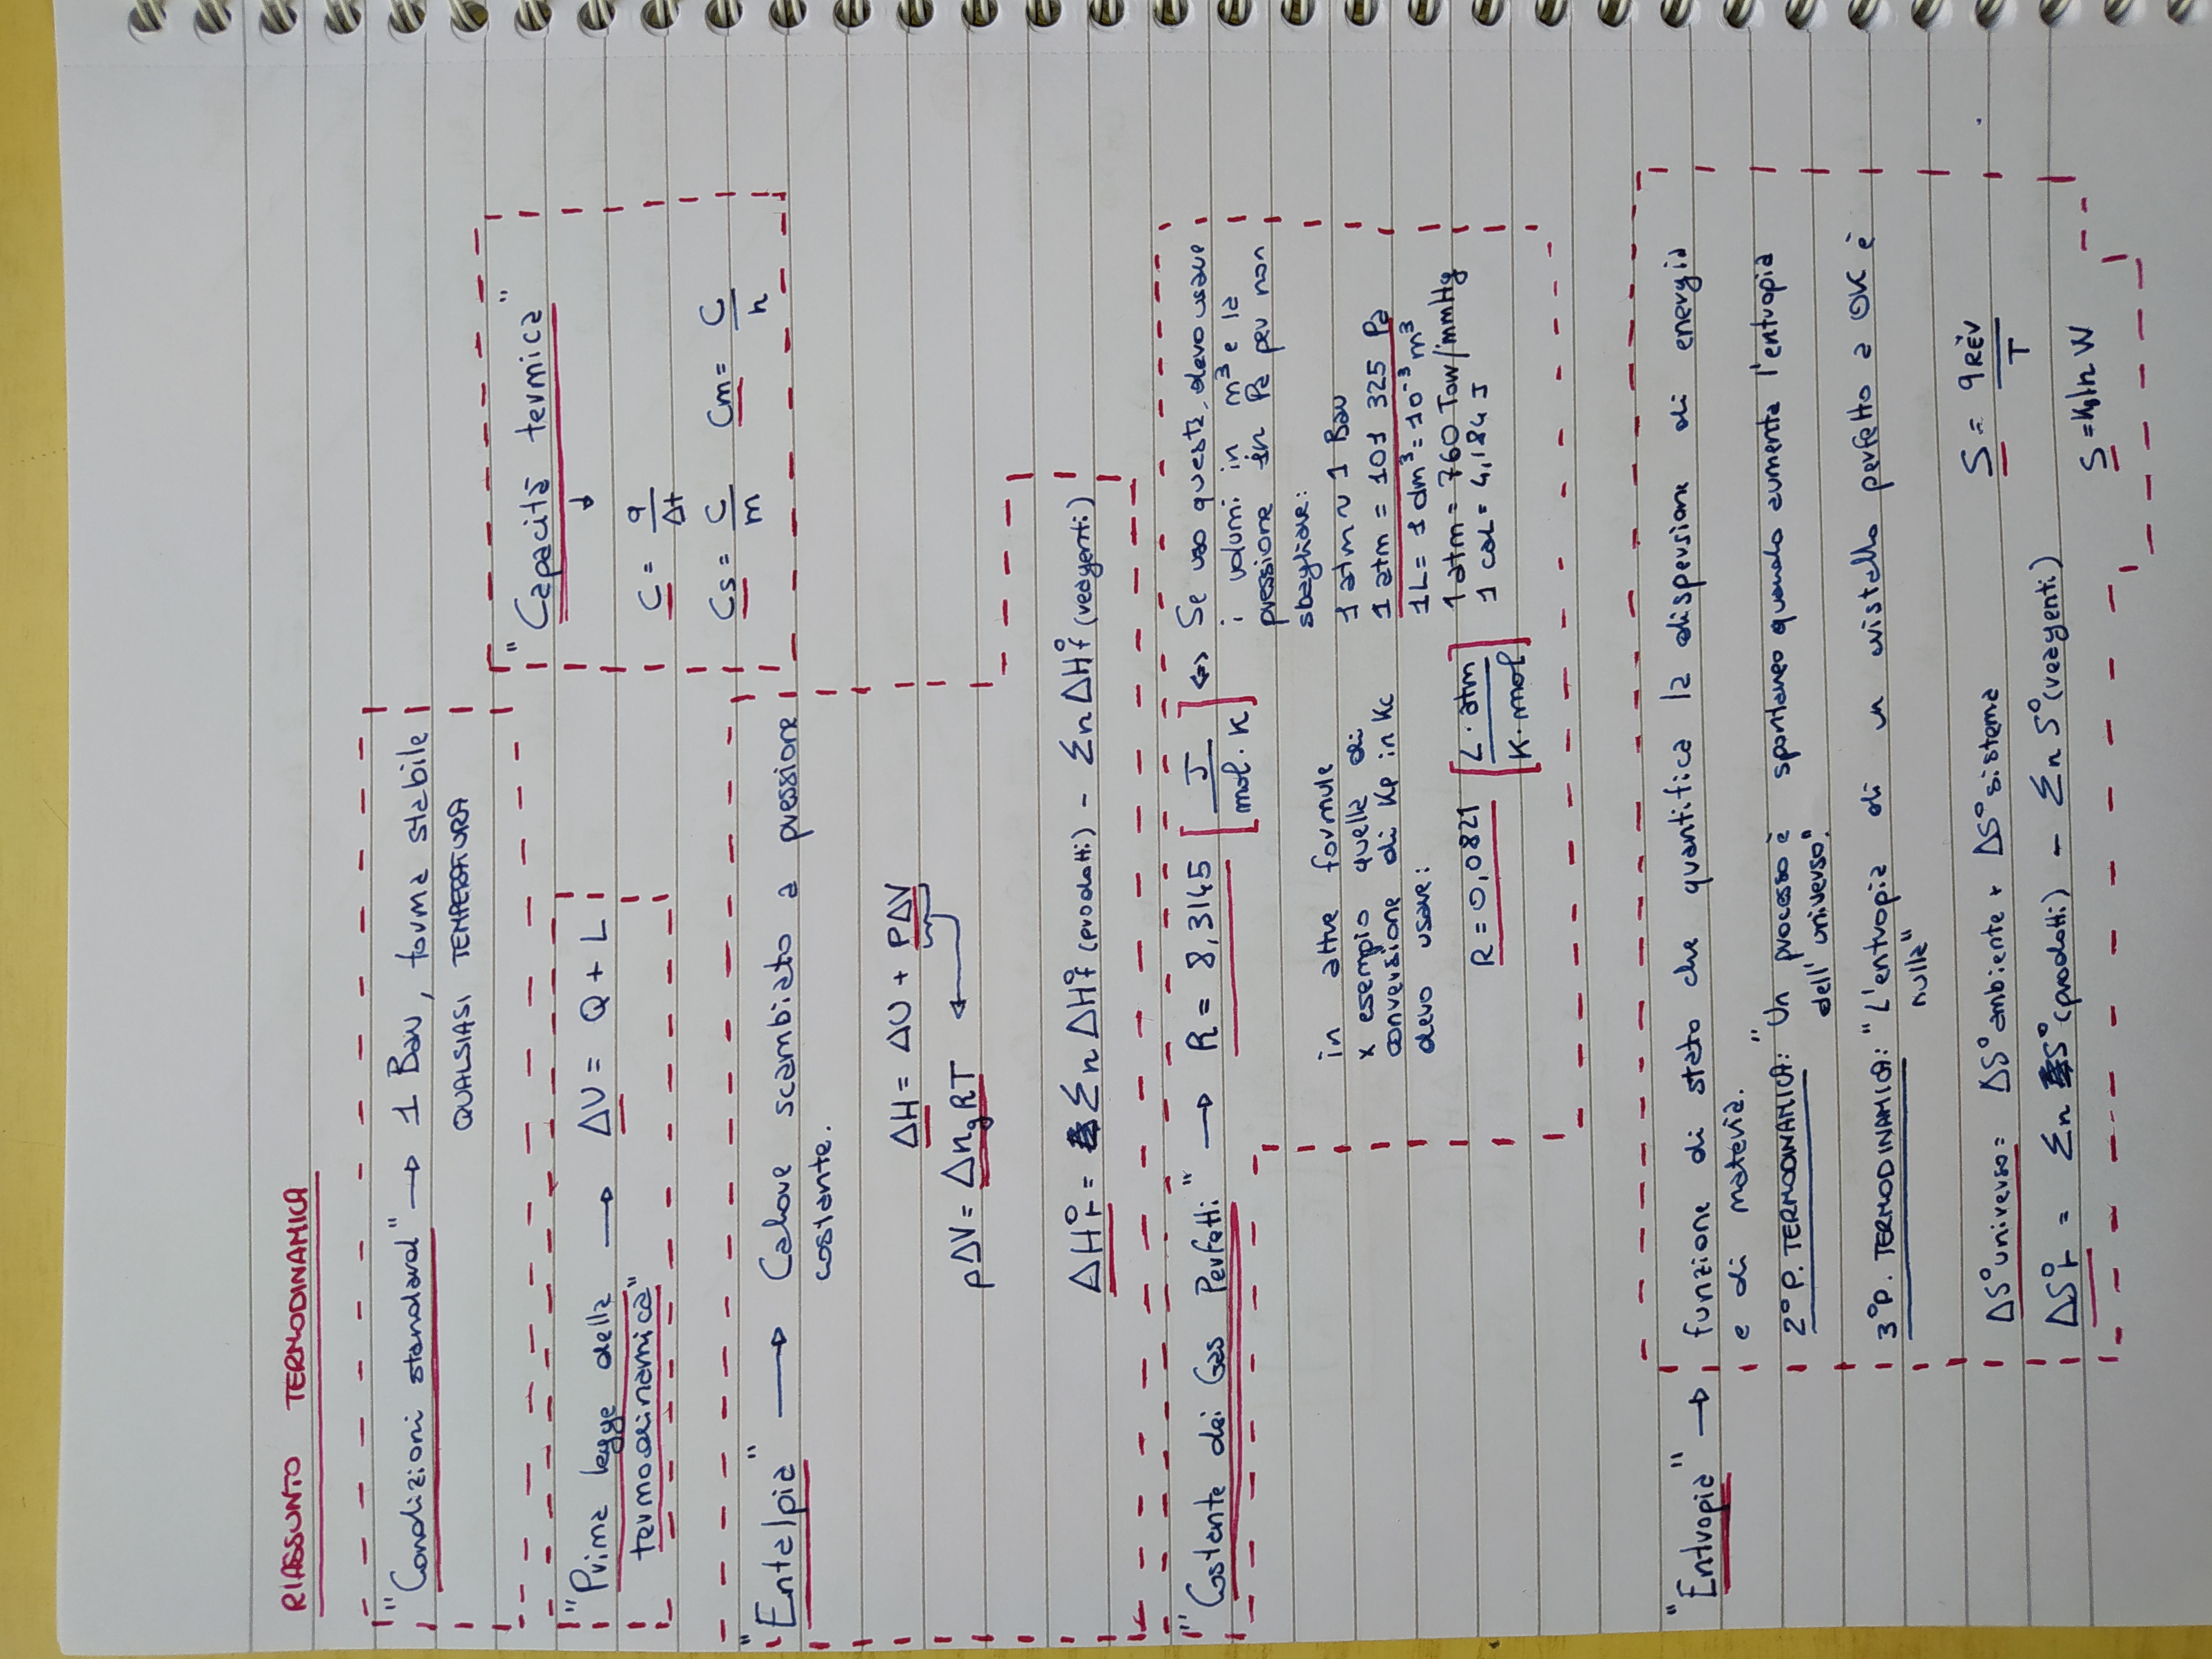 RIASSUNTO TERMODINAMICA
"Condizioni standard" → 1 Bar, forma stabile
QUALSIASI TEMPERATURA
"Capacità termica"
↓
C = q/Δt
Cs = C/m Cm = C/n
"Prima legge della → ΔU = Q + L
termodinamica"
"Entalpia" → Calore scambiato a pressione
costante.
ΔH = ΔU + PΔV
pΔV = ΔngRT ←
ΔH°r = Σn ΔH°f (prodotti) - Σn ΔH°f (reagenti)
"Costante dei Gas Perfetti" → R = 8,3145 [J/mol·K] <=> Se uso questa, devo usare
i volumi in m³ e la
pressione in Pa per non
sbagliare:
1 atm ~ 1 Bar
1 atm = 101 325 Pa
1L = 1 dm³ = 10⁻³ m³
1 atm = 760 Torr/mmHg
1 cal = 4,184 J
in altre formule
x esempio quella di
conversione di Kp in Kc
devo usare:
R = 0,0821 [L·atm/K·mol]
"Entropia" → funzione di stato che quantifica la dispersione di energia
e di materia.
2° P. TERMODINAMICA: "Un processo è spontaneo quando aumenta l'entropia
dell'universo".
3° P. TERMODINAMICA: "L'entropia di un cristallo perfetto a 0K è
nulla"
ΔS° universo = ΔS° ambiente + ΔS° sistema S = qREV/T
ΔS°r = Σn S° (prodotti) - Σn S° (reagenti) S = kb ln W